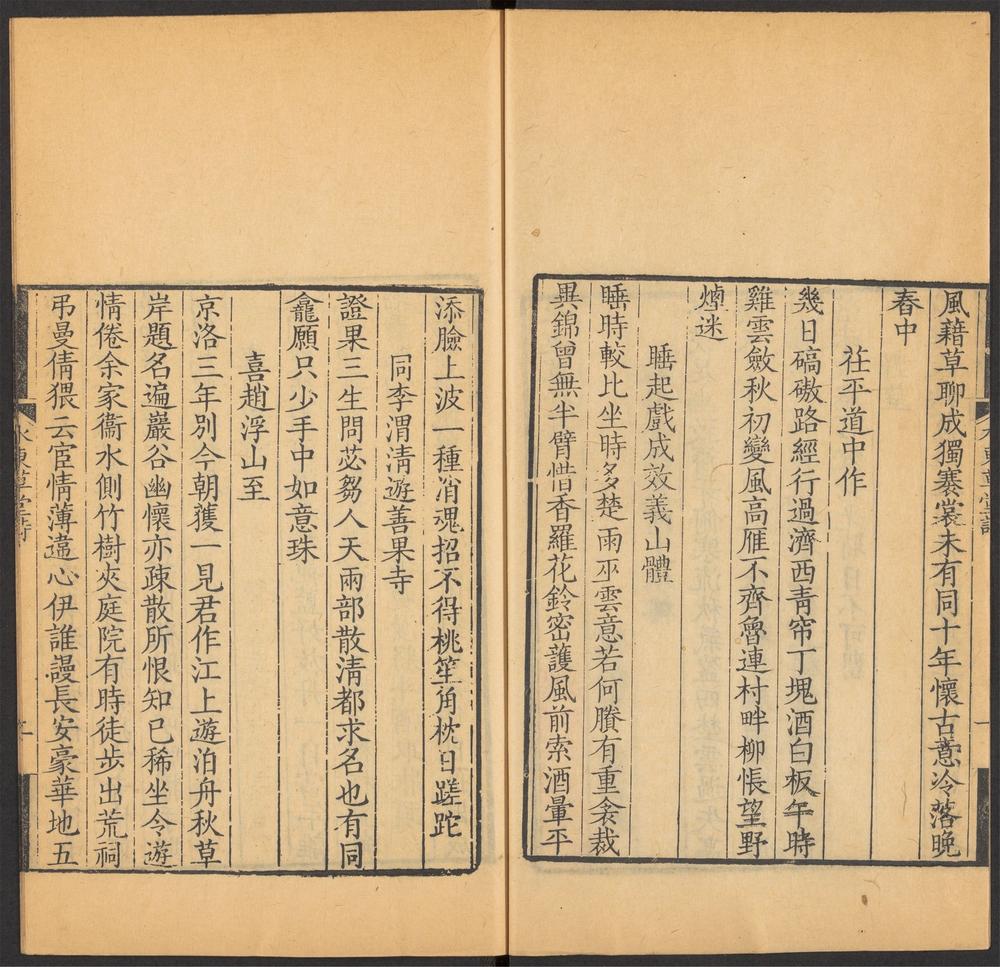 風藉草聊成獨褰裳未有同十年懷古意冷落晚
春中
茌平道中作
幾日碻磝路經行過濟西靑帘丁塊酒白板午時
雞雲斂秋初變風高雁不齊魯連村畔柳悵望野
煙迷
睡起戲成效義山體
睡時較比坐時多楚雨巫雲意若何賸有重衾裁
異錦曾無半臂惜香羅花鈴密護風前索酒暈平
添臉上波一種消魂招不得桃笙角枕日蹉跎
同李渭淸遊善果寺
證果三生問苾芻人天兩部散淸都求名也有同
龕願只少手中如意珠
喜趙浮山至
京洛三年別今朝獲一見君作江上遊泊舟秋草
岸題名遍巖谷幽懷亦疎散所恨知已稀坐令遊
情倦余家衞水側竹樹夾庭院有時徒步出荒祠
弔曼倩猥云宦情薄違心伊誰謾長安豪華地五